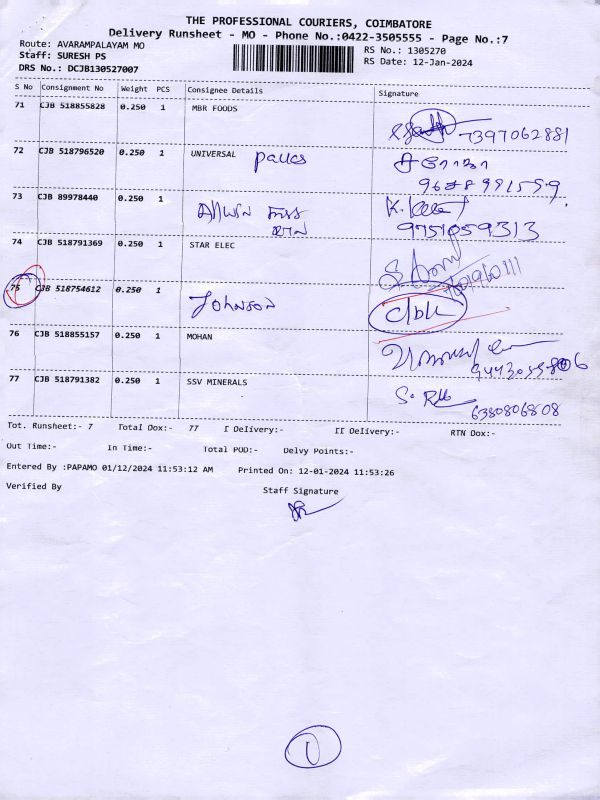 THE PROFESSIONAL COURIERS, COIMBATORE
Delivery Runsheet - MO - Phone No.:0422-3505555 - Page No.:7
Route: AVARAMPALAYAM MO
RS No.: 1305270
Staff: SURESH PS
RS Date: 12-Jan-2024
DRS No.: DCJB130527007
S No Consignment No Weight PCS Consignee Details Signature
71 CJB 518855828 0.250 1 MBR FOODS
7397062881
72 CJB 518796520 0.250 1 UNIVERSAL
73 CJB 89978440 0.250 1
9751059313
74 CJB 518791369 0.250 1 STAR ELEC
75 CJB 518754612 0.250 1 Johnson
76 CJB 518855157 0.250 1 MOHAN
77 CJB 518791382 0.250 1 SSV MINERALS
6380806808
Tot. Runsheet:- 7 Total Dox:- 77 I Delivery:- II Delivery:- RTN Dox:-
Out Time:- In Time:- Total POD:- Delvy Points:-
Entered By :PAPAMO 01/12/2024 11:53:12 AM Printed On: 12-01-2024 11:53:26
Verified By Staff Signature
1